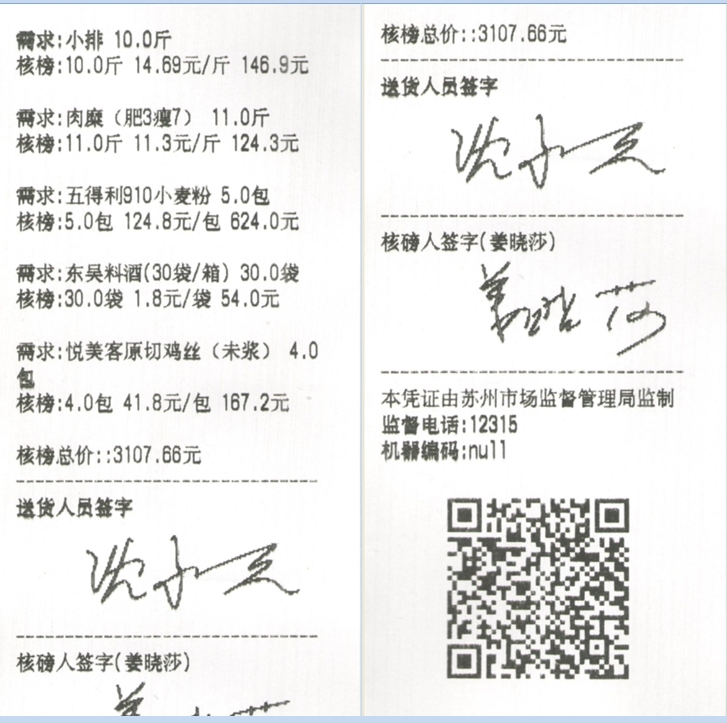 需求:小排 10.0斤
核榜:10.0斤 14.69元/斤 146.9元
需求:肉糜（肥3瘦7） 11.0斤
核榜:11.0斤 11.3元/斤 124.3元
需求:五得利910小麦粉 5.0包
核榜:5.0包 124.8元/包 624.0元
需求:东吴料酒(30袋/箱) 30.0袋
核榜:30.0袋 1.8元/袋 54.0元
需求:悦美客原切鸡丝（未浆） 4.0
包
核榜:4.0包 41.8元/包 167.2元
核榜总价::3107.66元
送货人员签字
核磅人签字(姜晓莎)
核榜总价::3107.66元
送货人员签字
核磅人签字(姜晓莎)
姜晓莎
本凭证由苏州市场监督管理局监制
监督电话:12315
机器编码:null